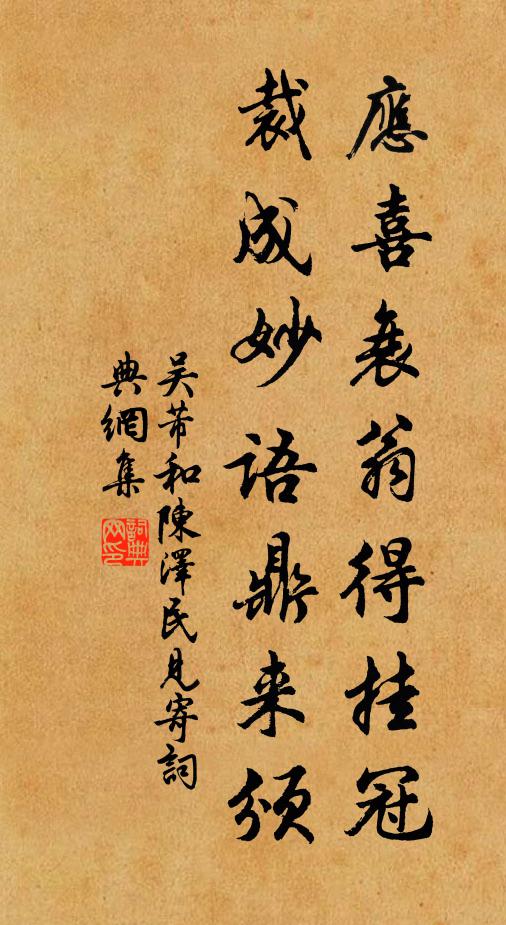 應喜衰翁得挂冠
裁成妙語鼎来頒
吴芾和陳澤民見寄詞
典網集
詞典网印